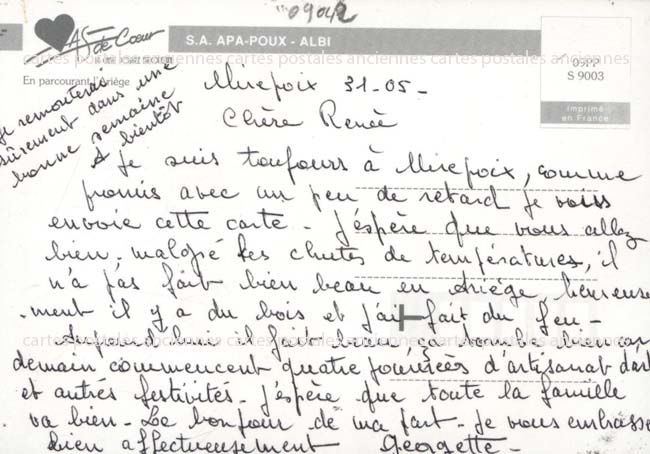 09042
As de Coeur
S.A. APA-POUX - ALBI
09PP
S 9003
imprimé
en France
En parcourant l'Ariège
cartes postales anciennes cartes postales anciennes cartes postales anciennes
Mirepoix 31-05-
Je remonterai
sûrement dans une
bonne semaine
A bientôt
Chère Renée
Je suis toujours à Mirepoix, comme
promis avec un peu de retard je vous
envoie cette carte - J'espère que vous allez
bien - malgré les chutes de températures, il
n'a pas fait bien beau en Ariège, heureuse
-ment il y a du bois et j'ai fait du feu -
cartes postales anciennes cartes postales anciennes cartes postales anciennes
Aujourd'hui il fait beau, ça tombe bien car
demain commencent quatre journées d'artisanat d'art
et autres festivités - J'espère que toute la famille
va bien - Le bonjour de ma part - Je vous embrasse
bien affectueusement Georgette -